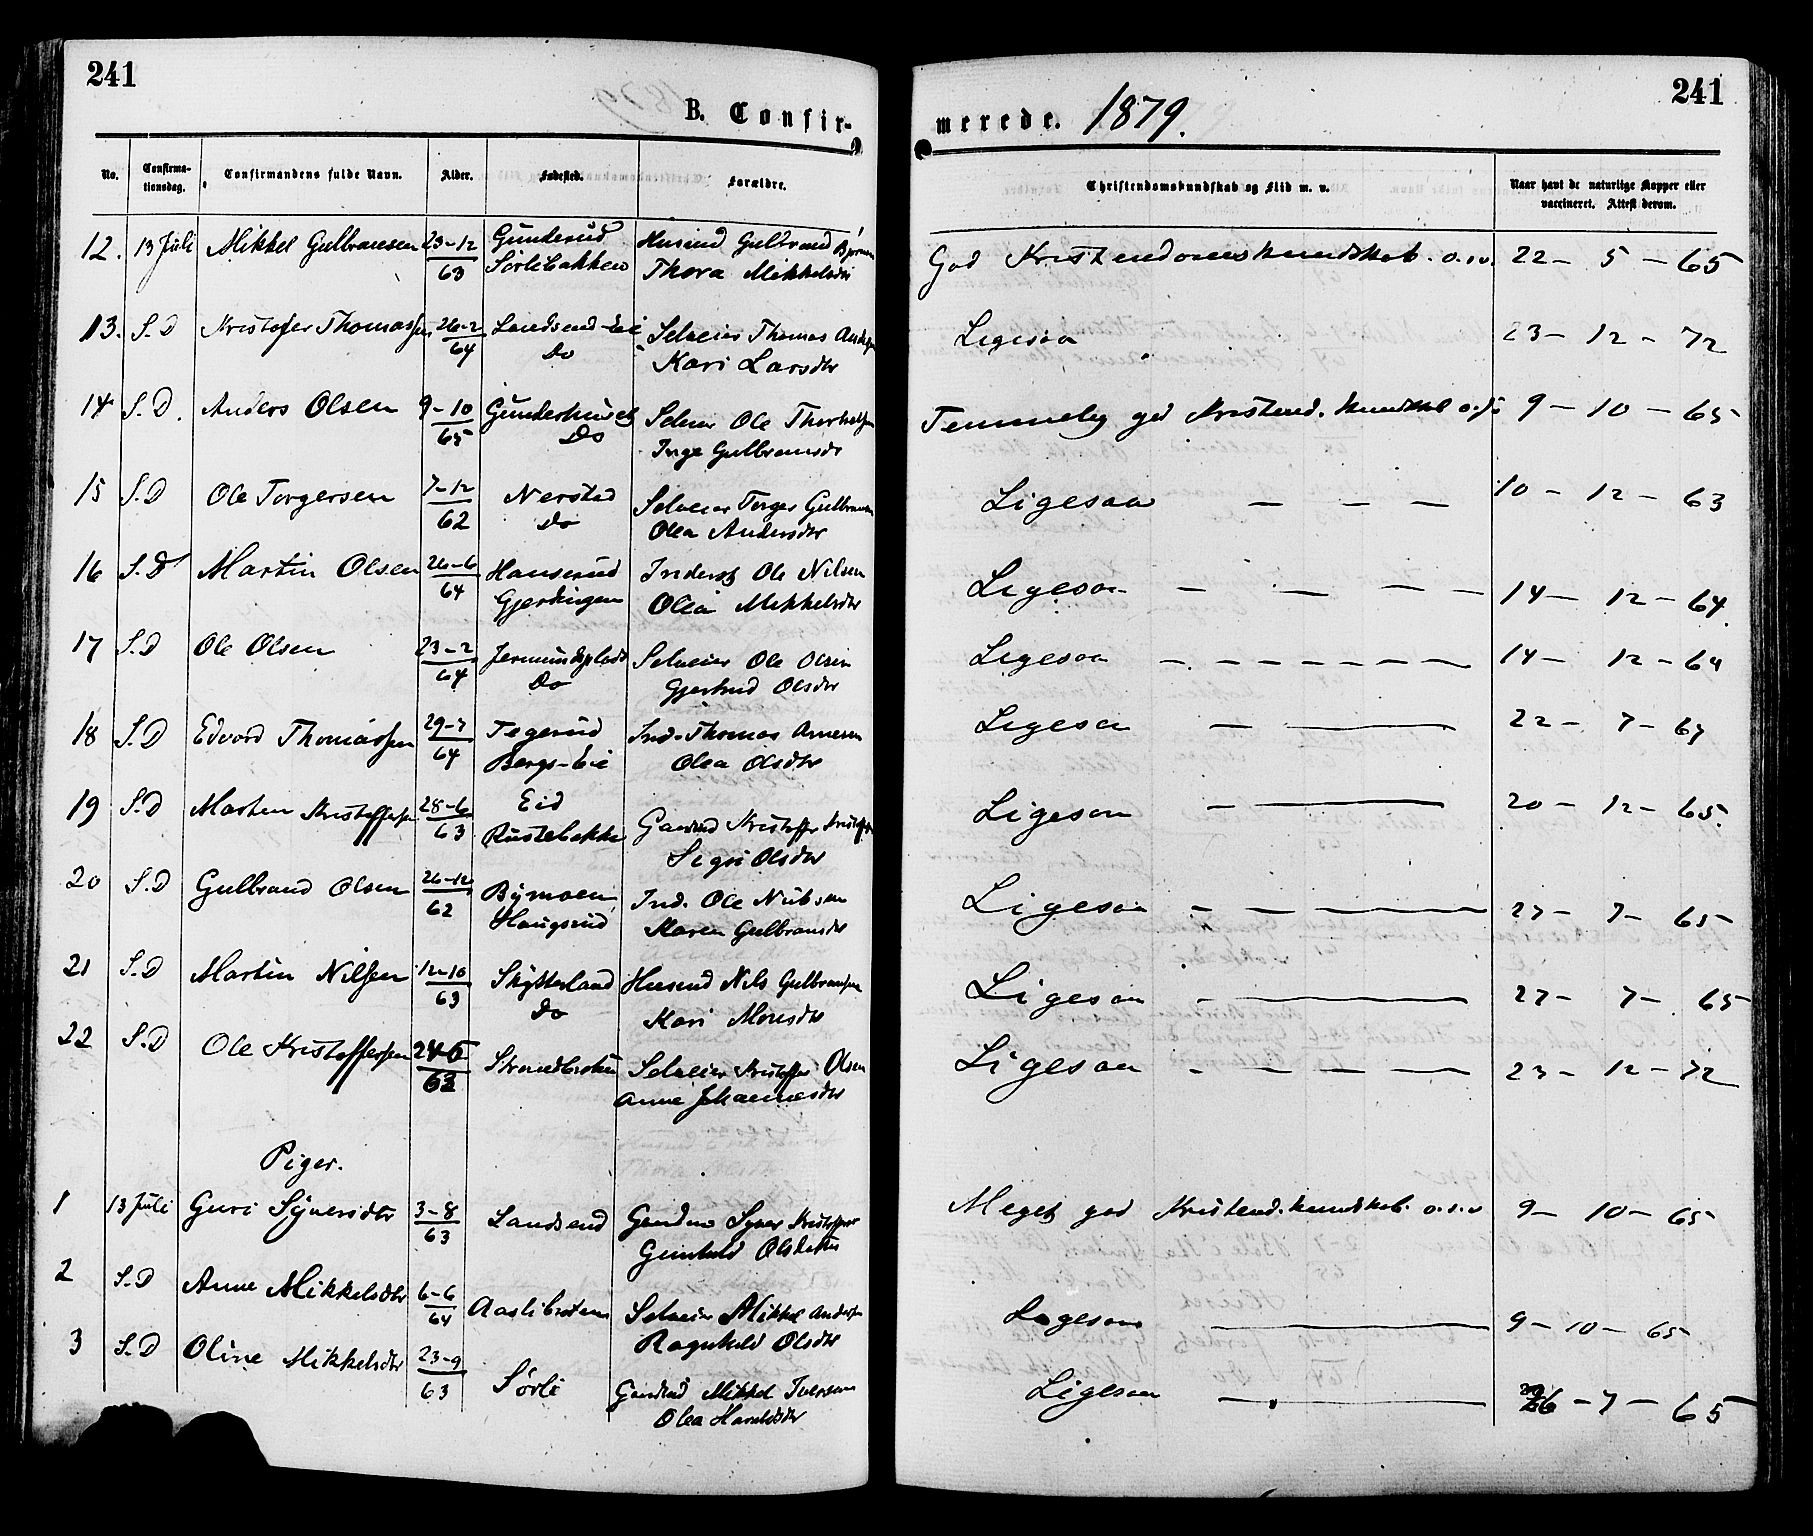 241
B. Confir-
merede. 1879.
241
No.
Confirma-
tionsdag.
Confirmandens fulde Navn.
Alder.
Fødested.
Forældre.
Christendomskundskab og Flid m. v.
Naar havt de naturlige Kopper eller
vaccineret. Attest derom.
12. 13 Juli Mikkel Gulbransen 23-12 Gunderud Husmd Gulbrand
63 Sørlibakken Thora Mikkelsdtr
God Kristendomskundskab. o.s.v. 22 - 5 - 65
13. S.D Kristofer Thomassen 26-2 Landsend-Eie Selveier Thomas
64 Do Kari Larsdtr
Ligesaa 23 - 12 - 72
14 S.D. Anders Olsen 9-10 Selveier Ole
65 Do Inge Gulbransdtr
Temmelig god Kristend. kundskab 9 - 10 - 65
15 S.D Ole Torgersen 7-12 Nerstad Selveier Torger Gulbransen
62 Do Olea Andersdtr
Ligesaa - - - 10 - 12 - 63
16 S.D Martin Olsen 26-6 Hanserud Inderst Ole Nilsen
64 Gjerdingen Olea Mikkelsdtr
Ligesaa - - - - 14 - 12 - 64
17 S.D Ole Olsen 23-2 Selveier Ole Olsen
64 Do Gjertrud Olsdtr
Ligesaa - - - - - - - 14 - 12 - 64
18 S.D Edvard Thomassen 29-7 Tegerud Ind. Thomas Arnesen
64 Bergs-Eie Olea Olsdtr
Ligesaa - — 22 - 7 - 67
19 S.D Marten Kristoffersen 28-6 Eid Gaardmd Kristoffer
63 Rustebakke Sigri Olsdtr
Ligesaa - — 20 - 12 - 65.
20 S.D Gulbrand Olsen 26-12 Bymoen Ind. Ole Nilsen
62 Haugsrud Karen Gulbransdtr
Ligesaa - - - — 27 - 7 - 65
21 S.D Martin Nilssen 12-10 Skytterland Husmd Nils Gulbransen
63 Do Kari Monsdtr
Ligesaa - — 27 - 7 - 65
22 S.D Ole Kristoffersen 24-5 Strandbroten Selveier Kristoffer Olsen
63 Anne Johannesdtr
Ligesaa - - - - - 23 - 12 - 72
Piger.
1 13 Juli Guri Syversdtr 3-8 Landsend Syver
63 Gunhild Olsdatter
Meget god Kristend. kundskab. o.s.v 9 - 10 - 65
2 S.D Anne Mikkelsdtr 6-6 Aaslibroten Selveier Mikkel Andersen
64 Ragnhild Olsdtr
Ligesaa — 9 - 10 - 65
3 S.D Oline Mikkelsdtr 23-9 Sørli Gaardmd Mikkel Iversen
63 Olea Haraldsdtr
Ligesaa - — 26 - 7 - 65